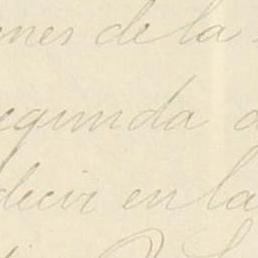 nes de la
segunda d
decir en la